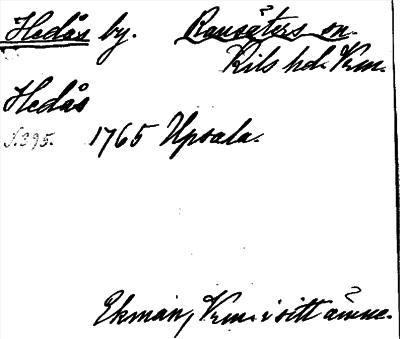 Hedås by. Ransäters sn.
Kils hd. Vrm.
Hedås
S. 395. 1765 Upsala.
Ekman, Vrm. i sitt ämne.